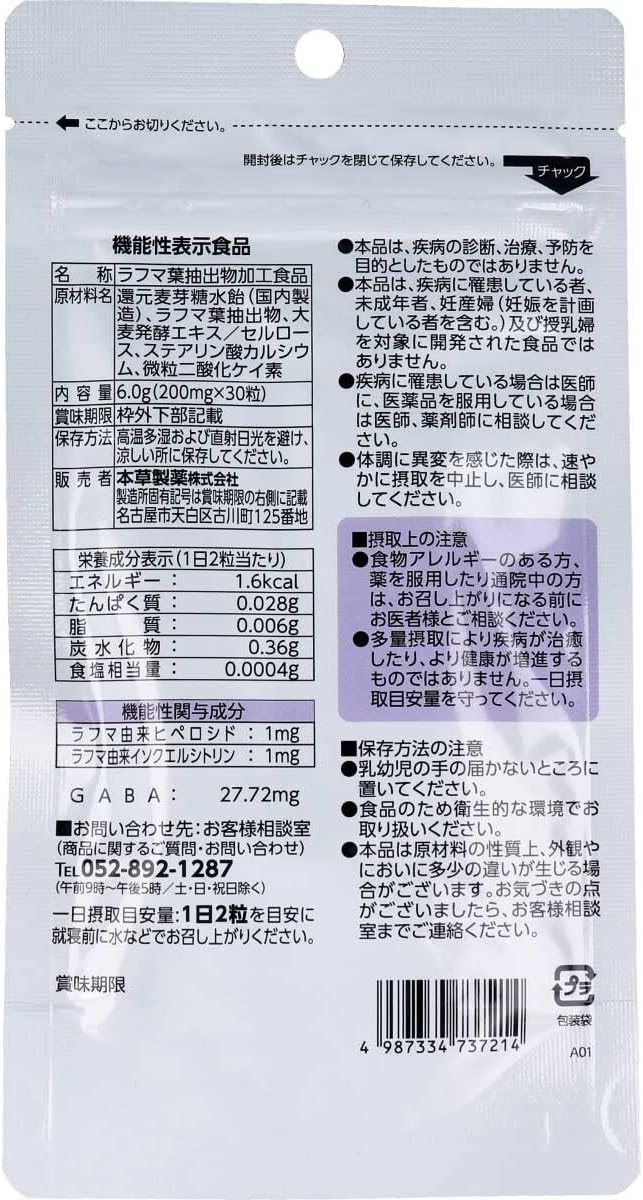 ここからお切りください。
開封後はチャックを閉じて保存してください。
チャック
機能性表示食品
名 称 ラフマ葉抽出物加工食品
原材料名 還元麦芽糖水飴(国内製
造)、ラフマ葉抽出物、大
麦発酵エキス/セルロー
ス、ステアリン酸カルシウ
ム、微粒二酸化ケイ素
内容量 6.0g(200mg×30粒)
賞味期限 枠外下部記載
保存方法 高温多湿および直射日光を避け、
涼しい所に保存してください。
販売者 本草製薬株式会社
製造所固有記号は賞味期限の右側に記載
名古屋市天白区古川町125番地
栄養成分表示(1日2粒当たり)
エネルギー: 1.6kcal
たんぱく質: 0.028g
脂質: 0.006g
炭水化物: 0.36g
食塩相当量: 0.0004g
機能性関与成分
ラフマ由来ヒペロシド:1mg
ラフマ由来イソクエルシトリン:1mg
GABA: 27.72mg
■お問い合わせ先:お客様相談室
(商品に関するご質問・お問い合わせ)
TEL052-892-1287
(午前9時~午後5時/土・日・祝日除く)
一日摂取目安量:1日2粒を目安に
就寝前に水などでお召し上がりください。
賞味期限
●本品は、疾病の診断、治療、予防を
目的としたものではありません。
●本品は、疾病に罹患している者、
未成年者、妊産婦(妊娠を計画
している者を含む。)及び授乳婦
を対象に開発された食品では
ありません。
●疾病に罹患している場合は医師
に、医薬品を服用している場合
は医師、薬剤師に相談してくだ
さい。
●体調に異変を感じた際は、速や
かに摂取を中止し、医師に相談
してください。
■摂取上の注意
●食物アレルギーのある方、
薬を服用したり通院中の方
は、お召し上がりになる前に
お医者様とご相談ください。
●多量摂取により疾病が治癒
したり、より健康が増進する
ものではありません。一日摂
取目安量を守ってください。
■保存方法の注意
●乳幼児の手の届かないところに
置いてください。
●食品のため衛生的な環境でお
取り扱いください。
●本品は原材料の性質上、外観や
においに多少の違いが生じる場
合がございます。お気づきの点
がございましたら、お客様相談
室までご連絡ください。
プラ
包装袋
4 987334 737214
A01